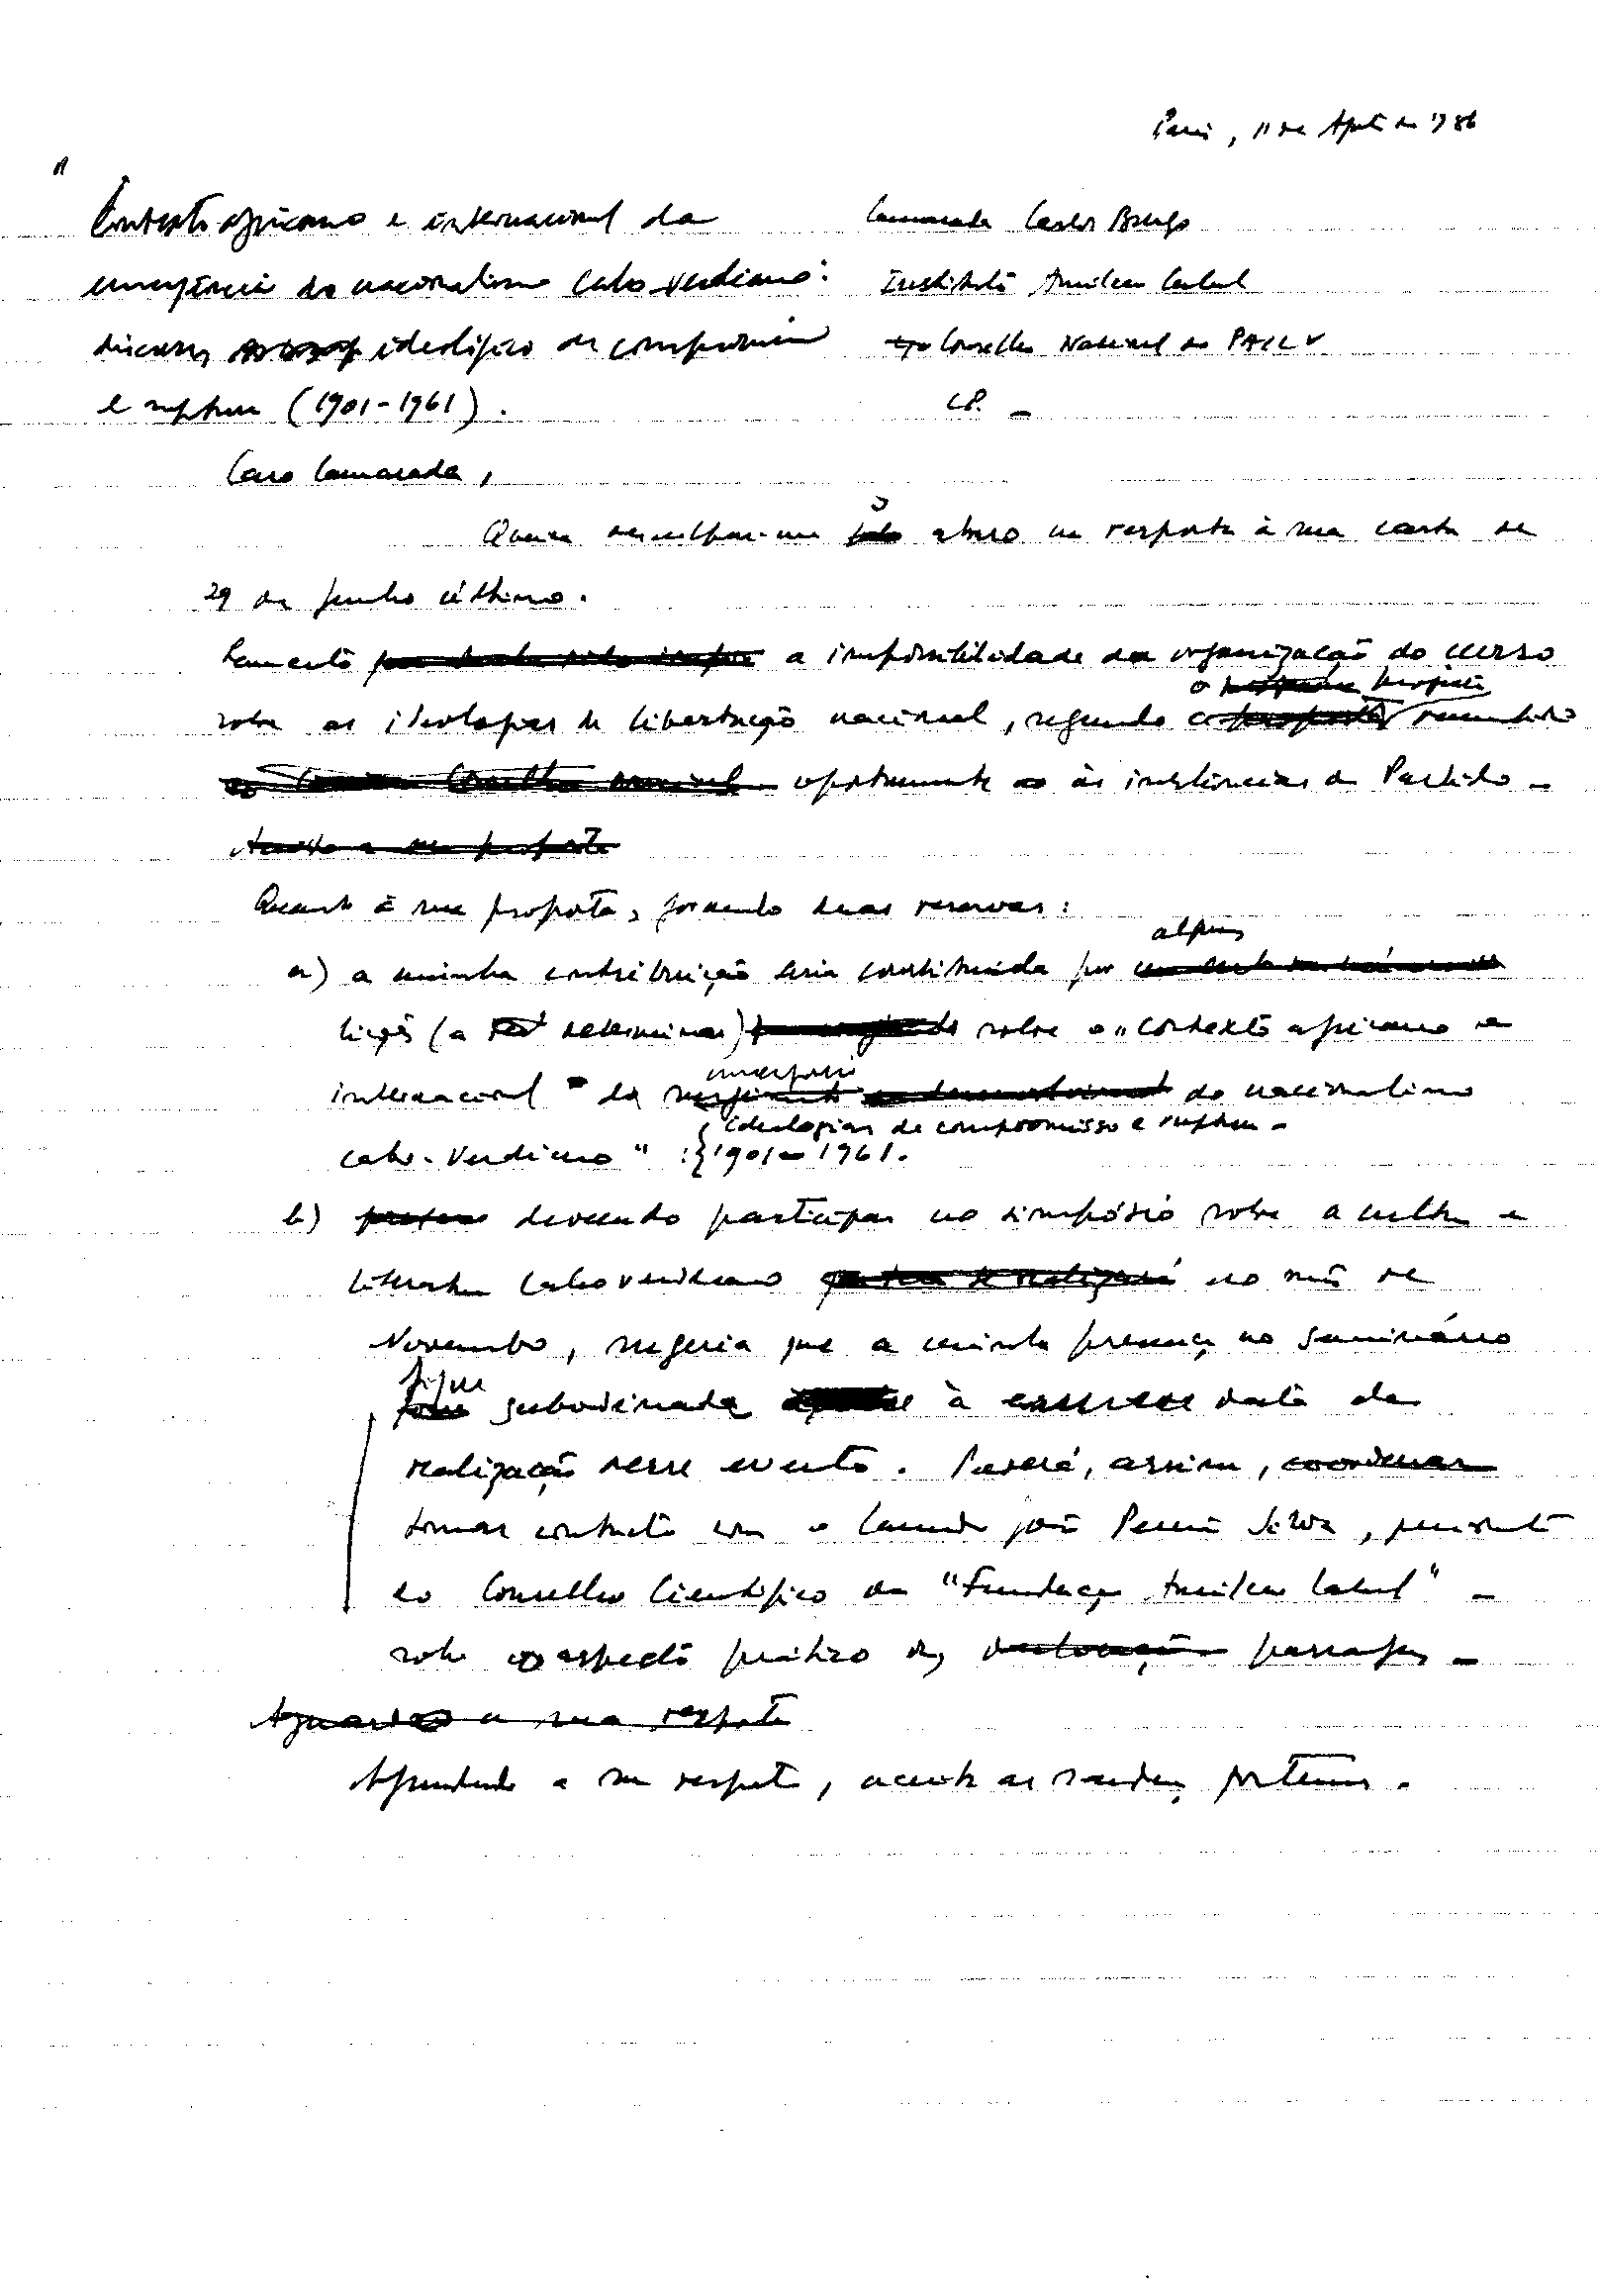 Paris, 11 de Agosto de 1986
Contexto africano e internacional da
emergência do nacionalismo cabo-verdiano:
discurso ideológico de compromisso
e ruptura (1901-1961).
Camarada Carlos
Instituto Amílcar Cabral
Conselho Nacional do PAICV
C.P.
Caro Camarada,
Queira desculpar-me o atraso na resposta à sua carta de
29 de Junho último.
Lamento a impossibilidade da organização do curso
sobre as ideologias de libertação nacional, segundo o projecto
oportunamente às instâncias do Partido.
Quanto à sua proposta, formulo duas reservas:
a) a minha contribuição seria constituída por alguns
lições (a determinar) sobre o "contexto africano e
internacional da emergência do nacionalismo
cabo-verdiano": ideologias de compromisso e ruptura -
1901-1961.
b) devendo participar no simpósio sobre a cultura e
literatura caboverdiana no mês de
Novembro, sugeria que a minha presença no seminário
fique subordinada à data da
realização desse evento. Poderá, assim, coordenar
tomar contacto com o Camarada João Pereira Silva, presidente
do Conselho Científico da "Fundação Amílcar Cabral" -
sobre o aspecto prático das passagens -
Aguardo a sua resposta
Aguardando a sua resposta, aceite as saudações fraternas.